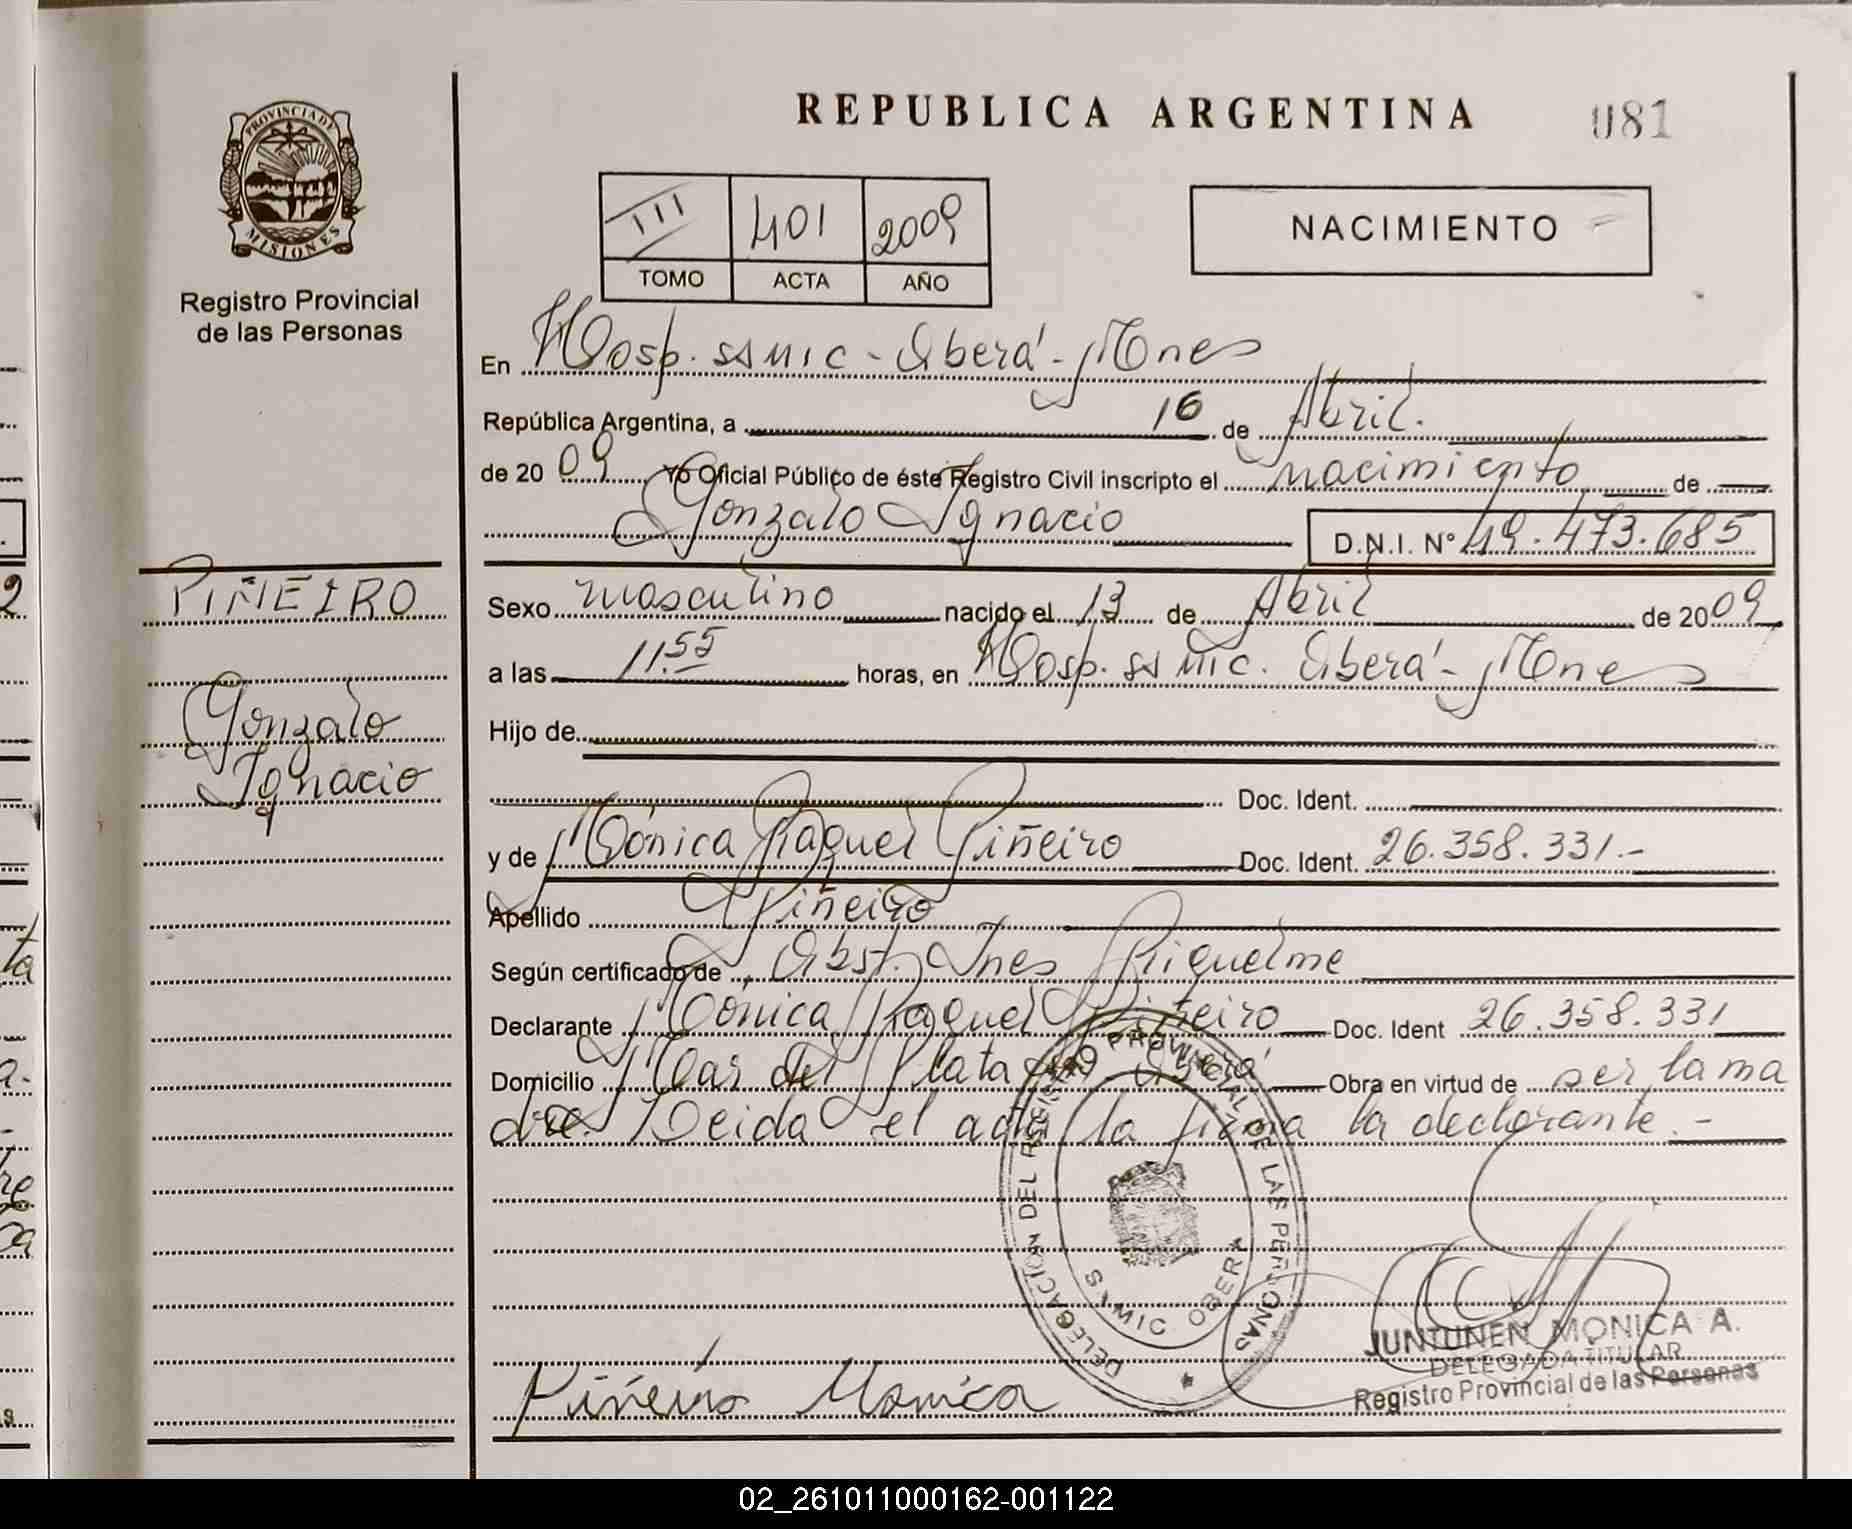 REPUBLICA ARGENTINA
081
PROVINCIA DE
MISIONES
Registro Provincial
de las Personas
III 401 2009
TOMO ACTA AÑO
NACIMIENTO
En Hosp. SSMIC - Oberá - Mnes
República Argentina, a 16 de Abril.
de 2009 Yo Oficial Público de éste Registro Civil inscripto el nacimiento de
Gonzalo Ignacio D.N.I. N° 49.473.685
PIÑEIRO
Gonzalo
Ignacio
Sexo masculino nacido el 13 de Abril de 2009
a las 11.55 horas, en Hosp. SSMIC. Oberá - Mnes
Hijo de
Doc. Ident.
y de Mónica Raquel Piñeiro Doc. Ident. 26.358.331.-
Apellido Piñeiro
Según certificado de Obst. Ines Riquelme
Declarante Mónica Raquel Piñeiro Doc. Ident 26.358.331
Domicilio Mar del Plata Oberá Obra en virtud de ser la ma
dre. Leida el acta la firma la declarante.-
DELEGACION DEL REGISTRO PROVINCIAL DE LAS PERSONAS
SAMIC OBERA
Piñeiro Monica
JUNTUNEN MONICA A.
DELEGADA TITULAR
Registro Provincial de las Personas
02_261011000162-001122